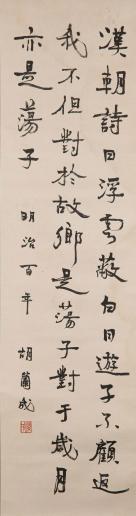 漢朝詩曰浮雲蔽白日遊子不顧返
我不但對於故鄉是蕩子對于歲月
亦是蕩子 明治百年 胡蘭成